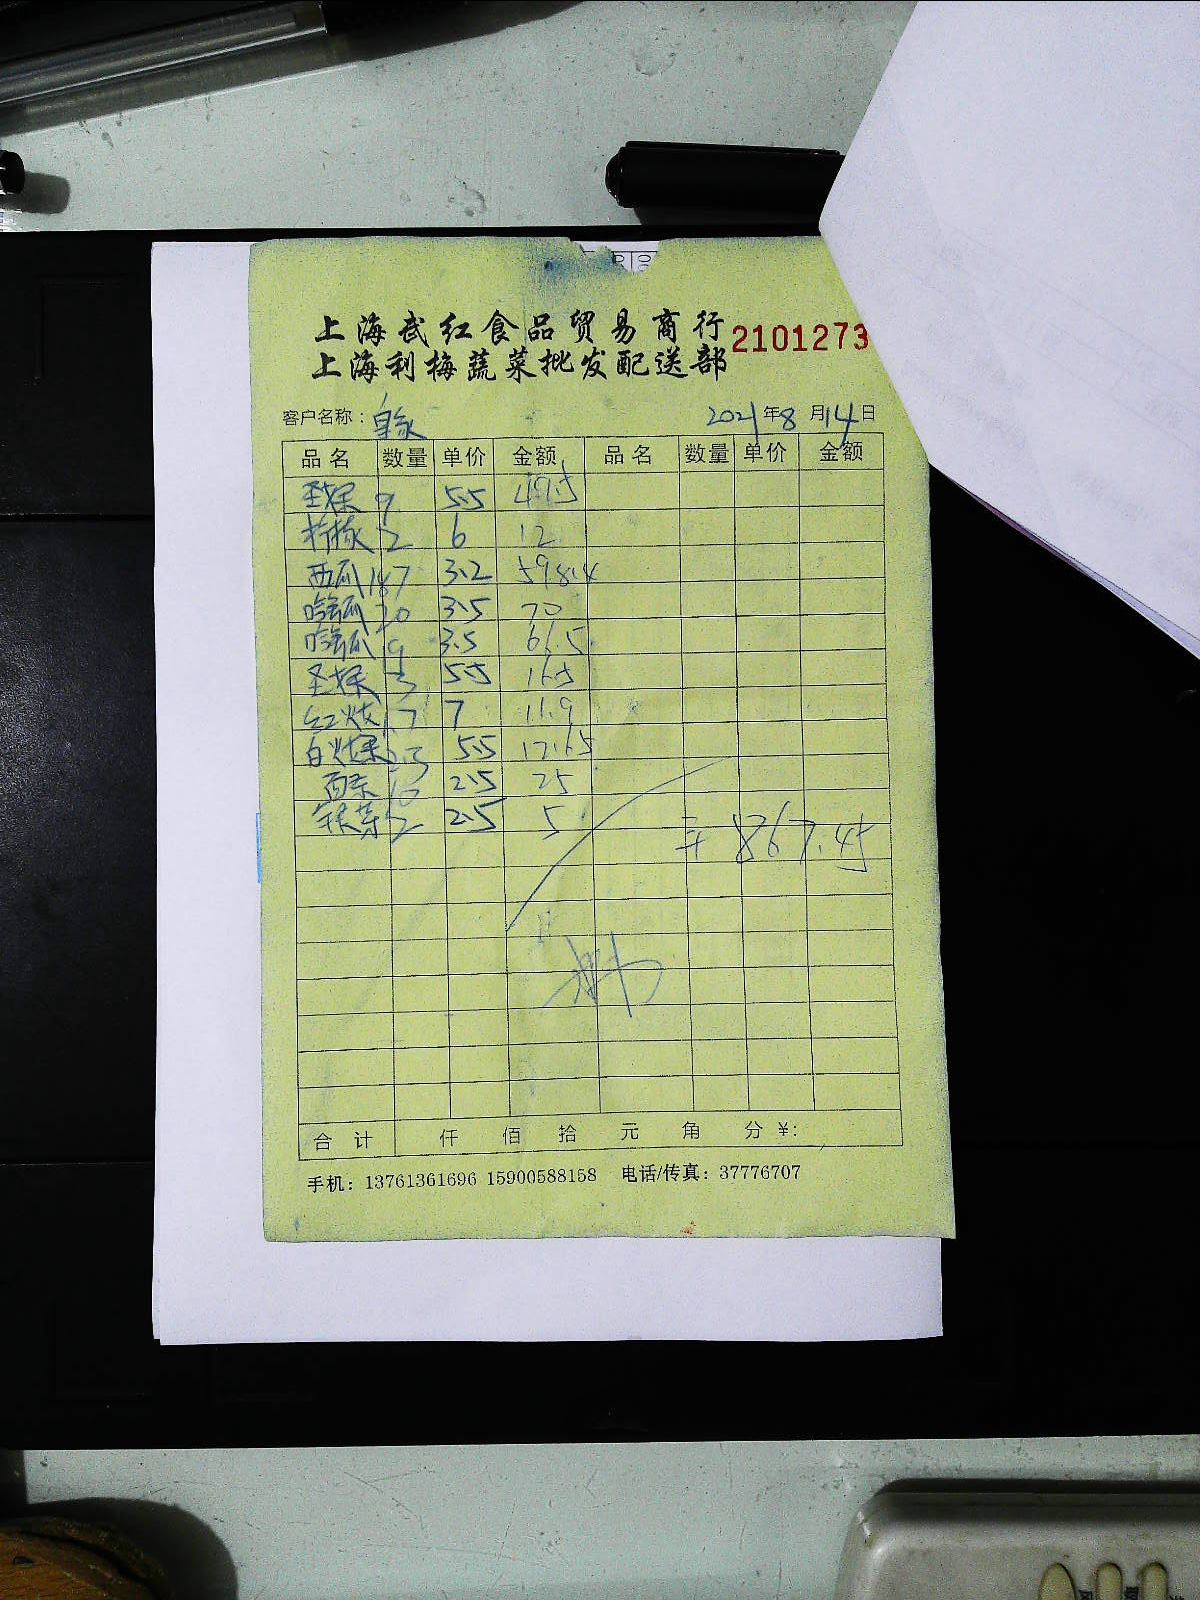 上海武红食品贸易商行
上海利梅蔬菜批发配送部
2101273
客户名称: 2021年8月14日
品名 数量 单价 金额 品名 数量 单价 金额
圣果 9 5.5 49.5
柠檬 2 6 12
西瓜 187 3.2 598.4
哈密瓜 20 3.5 70
哈密瓜 19 3.5 66.5
圣果 3 5.5 16.5
红火龙 1.7 7 11.9
白火龙果 2.3 5.5 12.65
西芹 10 2.5 25
银芽 2 2.5 5
¥ 867.45
合计 仟 佰 拾 元 角 分 ¥:
手机: 13761361696 15900588158 电话/传真: 37776707